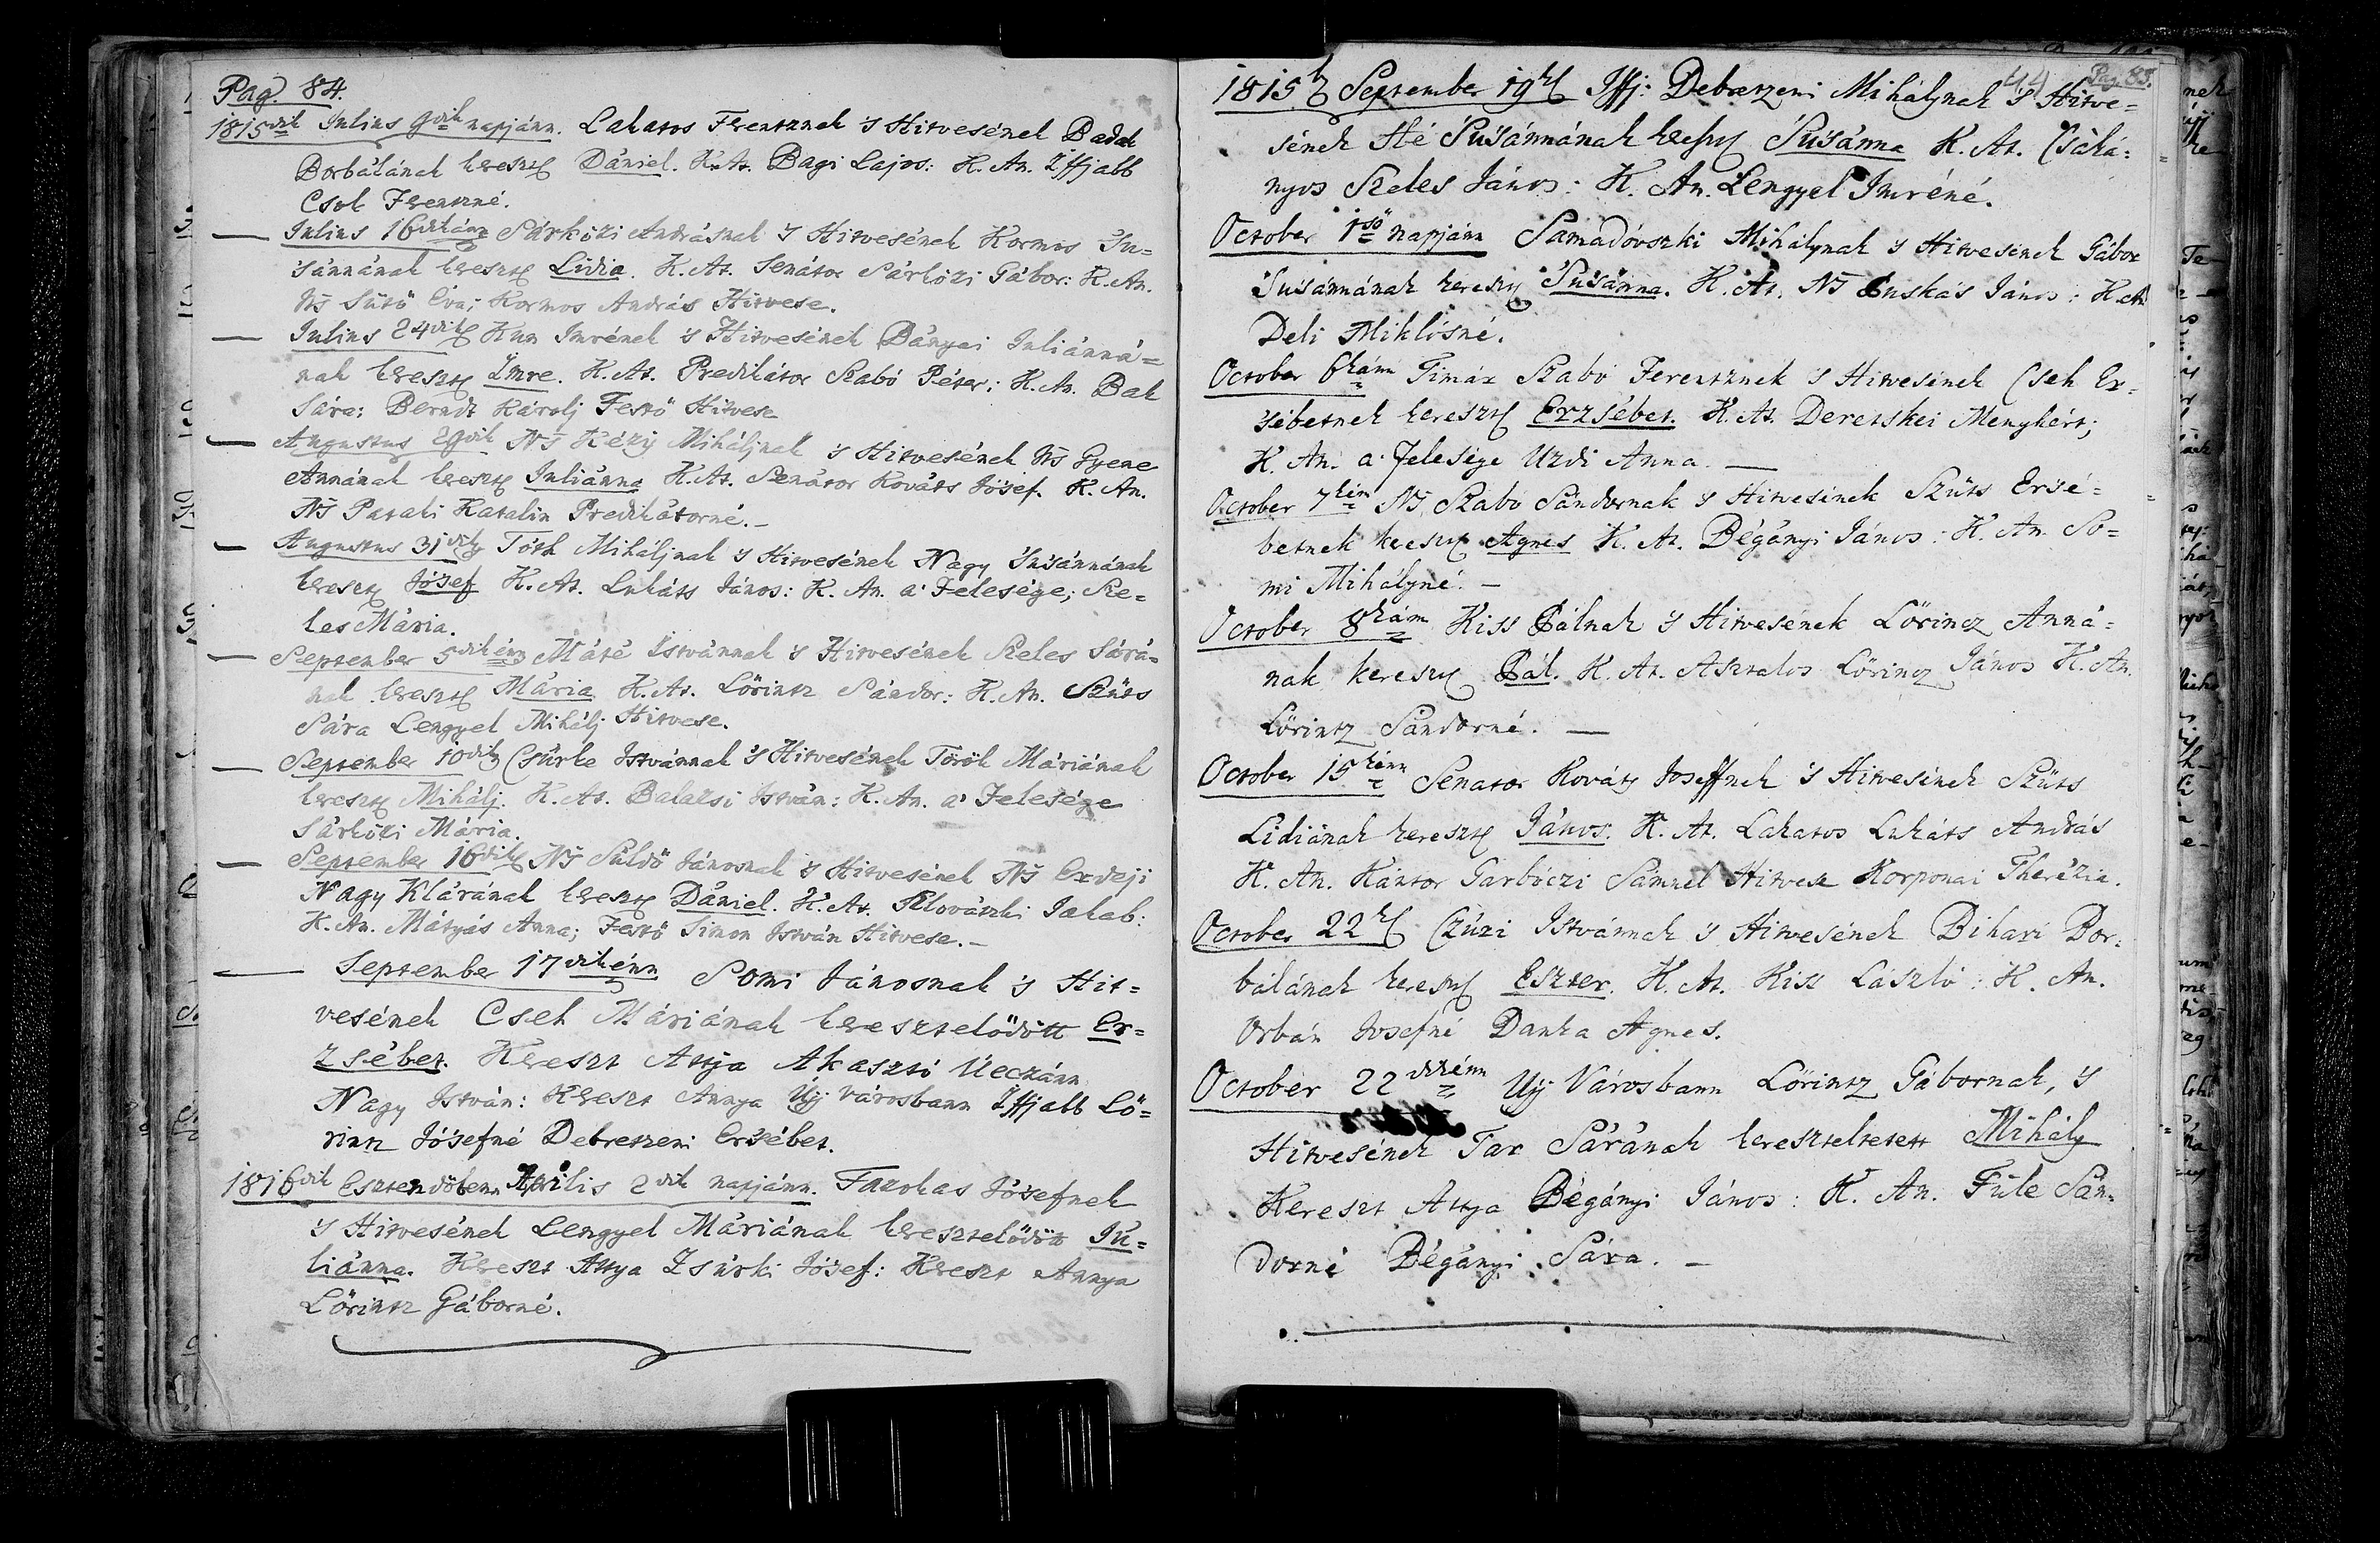 Pag. 84.
1815dik Julius 9dik napjánn. Lakatos Ferentznek 's Hitvesének Badak
Borbálának kereszt. Dániel. K. At. Bagi Lajos: K. An. Iffjabb
Csok Ferentzné.
— Julius 16dikánn Sárközi Andrásnak 's Hitvesének Kormos Su=
sánnának kereszt. Lidia. K. At. Senátor Sárközi Gábor: K. An.
Ns Sütö Éva; Kormos András Hitvese.
— Julius 24dik Kun Imrének 's Hitvesének Bányei Juliánná=
nak kereszt. Imre. K. At. Predikátor Szabó Péter: K. An. Bak
Sára; Berndt Károlj Festö Hitvese
— Augustus 29dik Ns Kézij Miháljnak 's Hitvesének Ns Gyene
Annának kereszt. Juliánna K. At. Senátor Kováts Jósef. K. An.
Ns Pataki Katalin Predikátorné. –
— Augustus 31dik Tóth Miháljnak 's Hitvesének Nagy Susánnának
kereszt. Jósef K. At. Lukáts János: K. An. a' Felesége; Sze=
les Mária.
— September 5dikénn Máté Istvánnak 's Hitvesének Szeles Sárá=
nak kereszt. Mária K. At. Lörintz Sándor: K. An. Szüts
Sára Lengyel Mihálj Hitvese.
— September 10dik Csürke Istvánnak 's Hitvesének Török Máriának
kereszt. Mihálj. K. At. Balatsi István: K. An. a' Felesége
Sárközi Mária.
— September 16dik Ns Süldö Jánosnak 's Hitvesének Ns Erdeji
Nagy Klárának kereszt. Dániel. K. At. Szlovászki Jakab:
K. An. Mátyás Anna; Festö Simon István Hitvese. –
— September 17dikénn Somi Jánosnak 's Hit=
vesének Cseh Máriának keresztelödött Er=
zsébet. Kereszt Attja Akasztó Úczánn
Nagy István: Kereszt Annya Uj Városbann Iffjabb Lö=
rintz Jósefné Debretzeni Ersébet.
1816dik Esztendöbenn Április 2dik napjánn. Fazokas Jósefnek
's Hitvesének Lengyel Máriának keresztelödött Ju=
liánna. Kereszt Attya Zsúrki Jósef: Kereszt Annya
Lörintz Gáborné.
44 Pag. 85.
1815b September 19k Iffj: Debretzeni Mihálynak 's Hitve=
sének Hé Susánnának kereszt. Susánna K. At. Csáká=
nyos Szeles János: K. An. Lengyel Imréné.
October 1sö napjánn Samadóvszki Mihálynak 's Hitvesének Gábor
Susannának kereszt. Susánna. K. At. Ns Puskás János: K. An
Deli Miklósné.
October 6kánn Timár Szabó Ferentznek 's Hitvesének Cseh Er=
'sébetnek kereszt. Erzsébet. K. At. Deretskei Menyhért;
K. An. a' Felesége Uzdi Anna. —
October 7kénn Ns Szabó Sándornak 's Hitvesének Szüts Ersé=
betnek kereszt. Agnes K. At. Bégányi János: K. An. So=
mi Mihályné. –
October 8kánn Kiss Pálnak 's Hitvesének Lörincz Anná=
nak kereszt. Pál. K. At. Asztalos Lörincz János K. An.
Lörintz Sándorné. —
October 15kénn Senator Kováts Joseffnek 's Hitvesének Szüts
Lidiának kereszt. János. K. At. Lakatos Lukáts András
K. An. Kántor Garbóczi Sámuel Hitvese Korponai Therézia.
October 22k Czúzi Istvánnak 's Hitvesének Bihari Bor=
bálának kereszt. Eszter. K. At. Kiss László: K. An.
Orbán Josefné Danka Agnes.
October 22dikénn Uj Városbann Lörintz Gábornak, 's
Hitvesének Tar Sárának kereszteltetett Mihály
Kereszt Attya Bégányi János: K. An. Füle Sán=
dorné Bégányi Sára. –